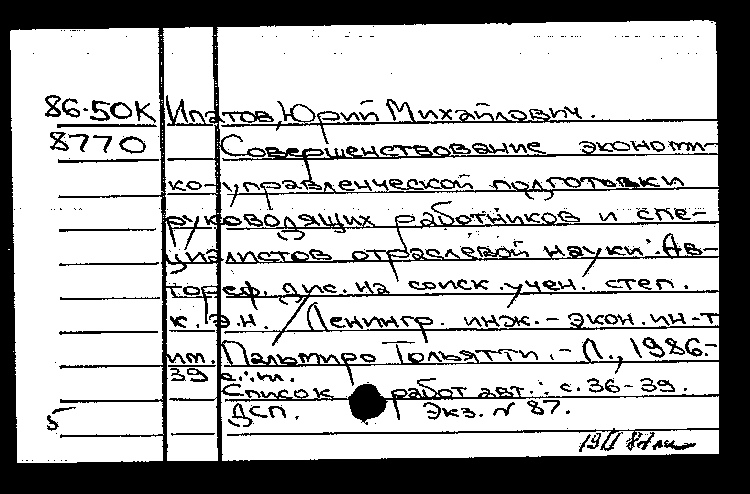 86-50К Ипатов, Юрий Михайлович.
8770 Совершенствование экономи-
ко-управленческой подготовки
руководящих работников и спе-
циалистов отраслевой науки: Ав-
тореф. дис. на соиск. учен. степ.
к. э. н. / Ленингр. инж.-экон. ин-т
им. Пальмиро Тольятти. - Л., 1986.-
39 с.: ил.
Список работ авт.: с. 36-39.
ДСП. Экз. № 87.
5